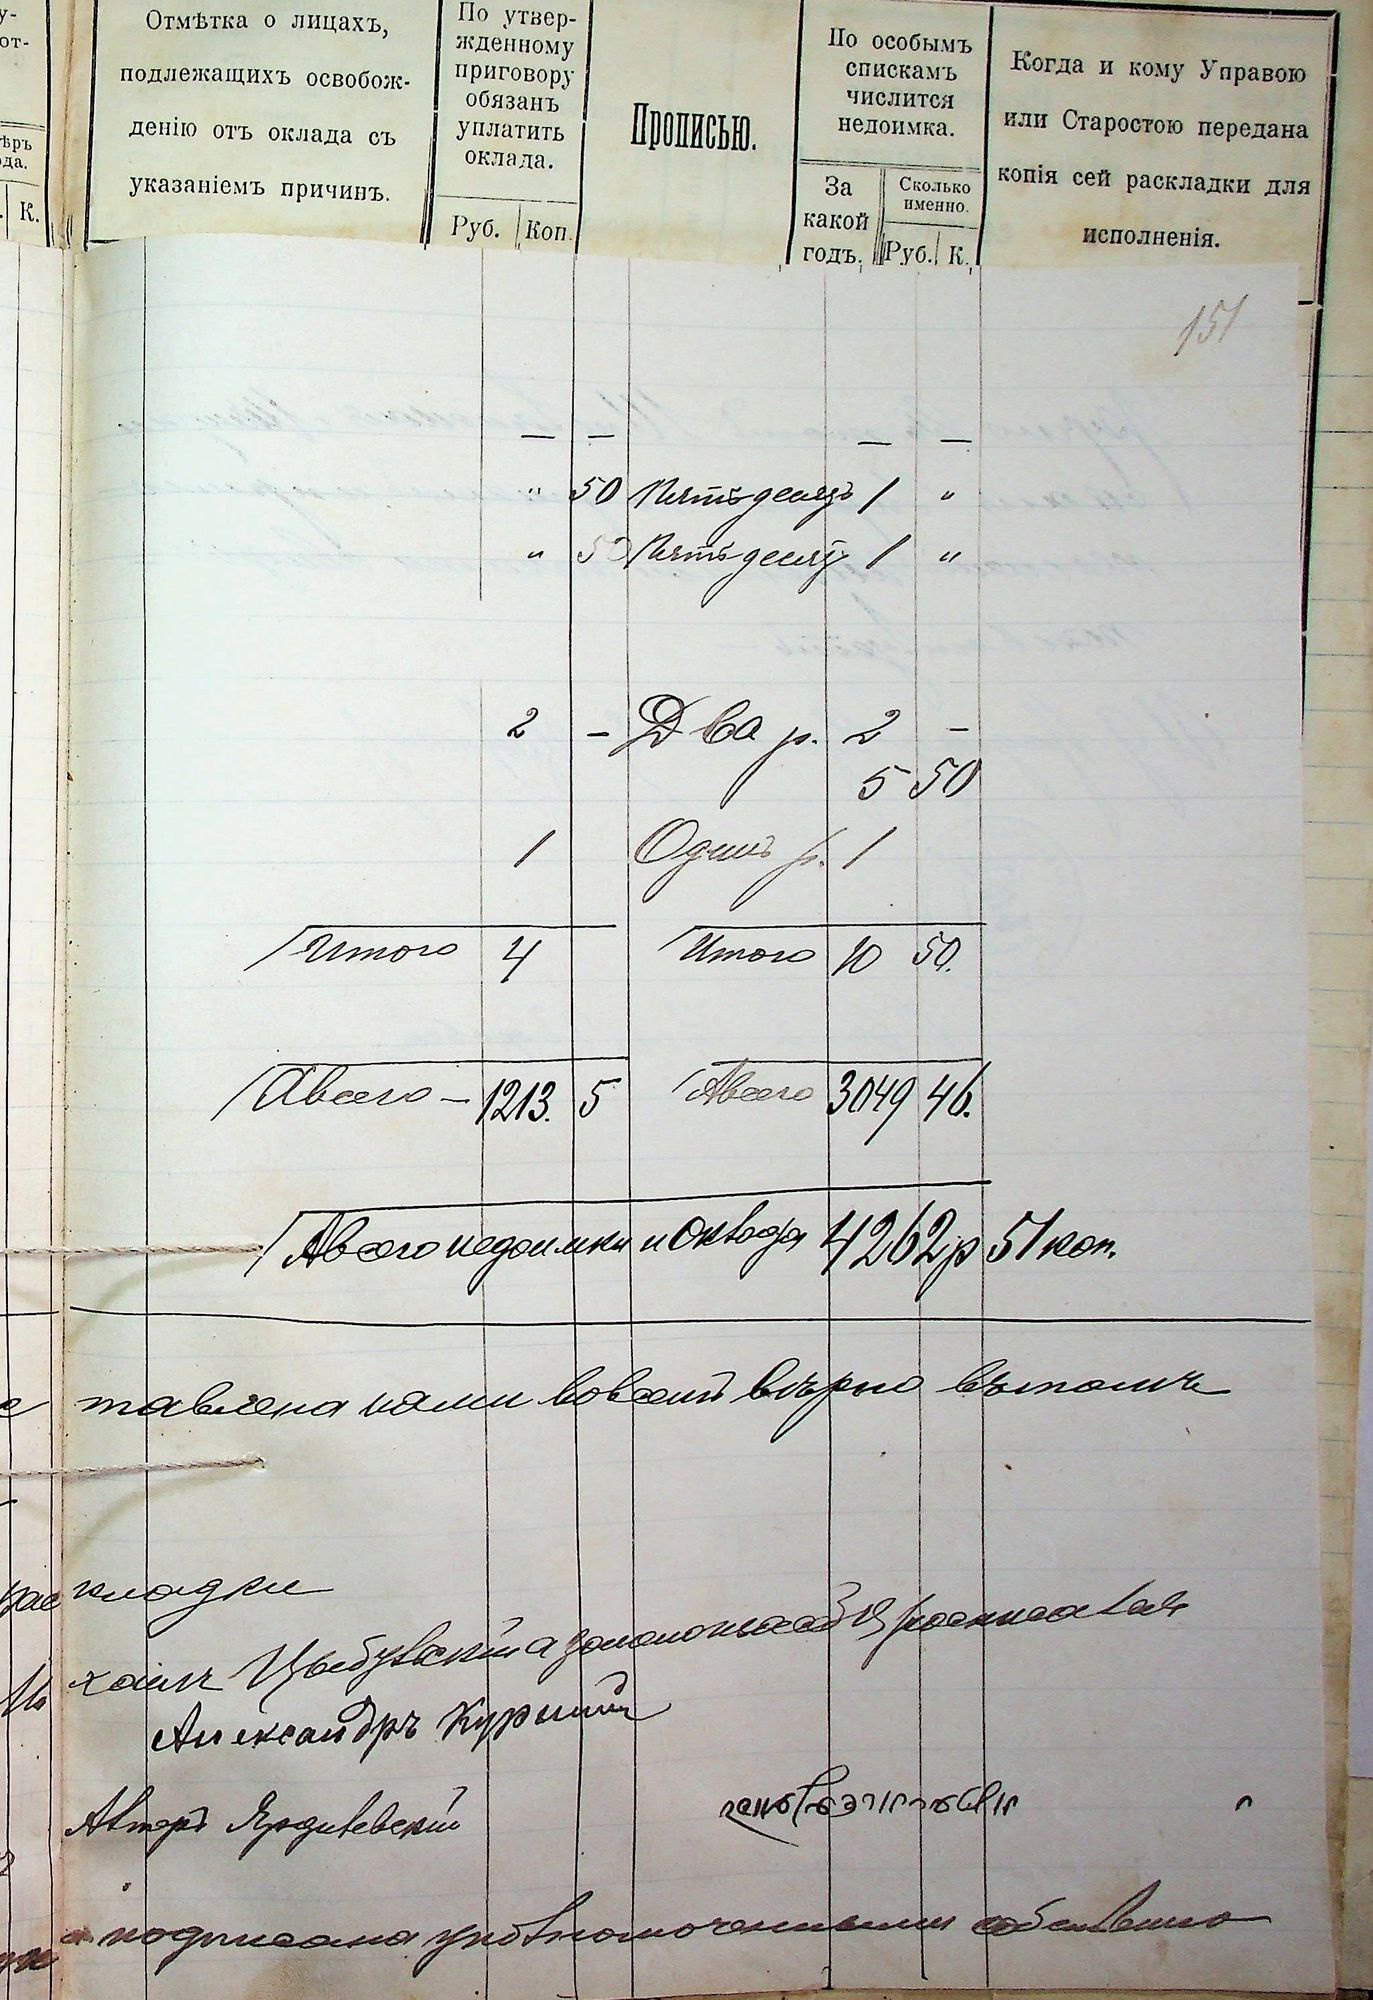 Отмѣтка о лицахъ,
подлежащихъ освобож-
денію отъ оклада съ
указаніемъ причинъ.
По утвер-
жденному
приговору
обязанъ
уплатить
оклада.
Руб. Коп.
Прописью.
По особымъ
спискамъ
числится
недоимка.
За
какой
годъ.
Сколько
именно.
Руб. К.
Когда и кому Управою
или Старостою передана
копія сей раскладки для
исполненія.
К.
151
— — — —
" 50 Пятьдесятъ 1 "
" 50 Пятьдесятъ 1 "
2 - Два р. 2 -
5 50
1 Одинъ р. 1
Итого 4 Итого 10 50.
Авсего - 1213. 5 Авсего 3049 46.
Авсего недоимки и оклада 4262 р 51 коп.
тавлена нами вовсемъ вѣрно въ томъ
кладки
Александръ Курицкій
подписана уполномоченными собственно